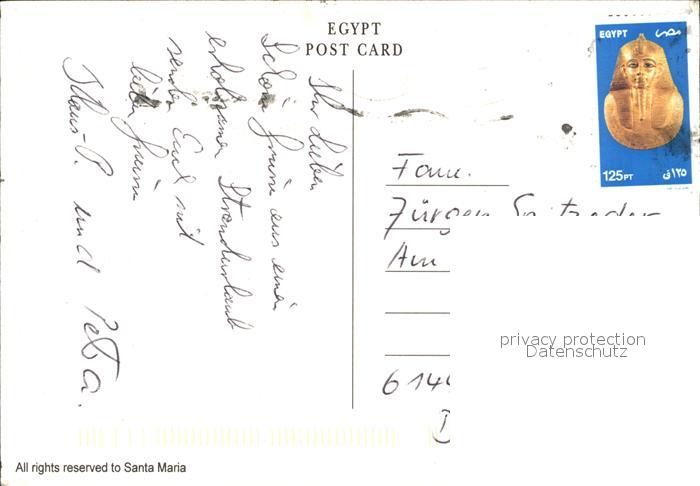 EGYPT
POST CARD
EGYPT مصر
125PT ١٢٥ق
Ihr Lieben
Schöne Grüsse aus einem
erholsamen Strandurlaub
senden Euch mit
lieben Grüssen
Klaus-P. und Petra.
Fam.
Jürgen
Am
614
D
privacy protection
Datenschutz
All rights reserved to Santa Maria